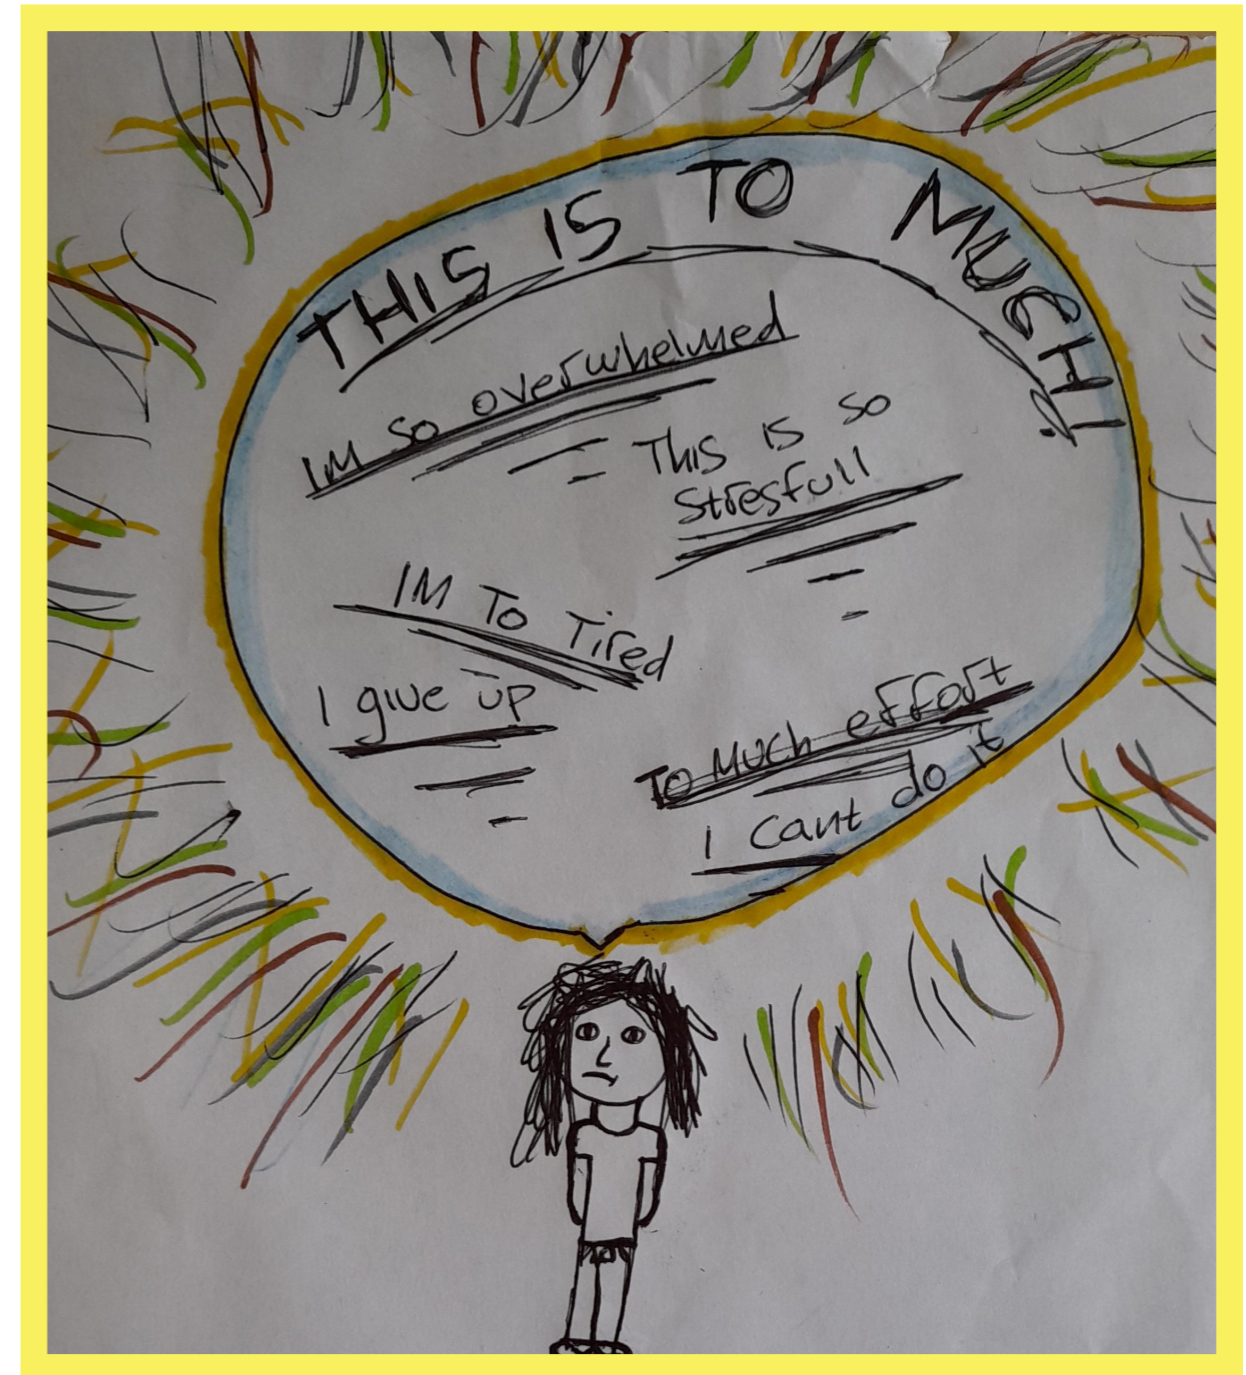 THIS IS TO MUCH!
IM SO overwhelmed
THIS IS SO
Stresfull
IM TO Tired
I give up
TO MUCH effort
I cant do it